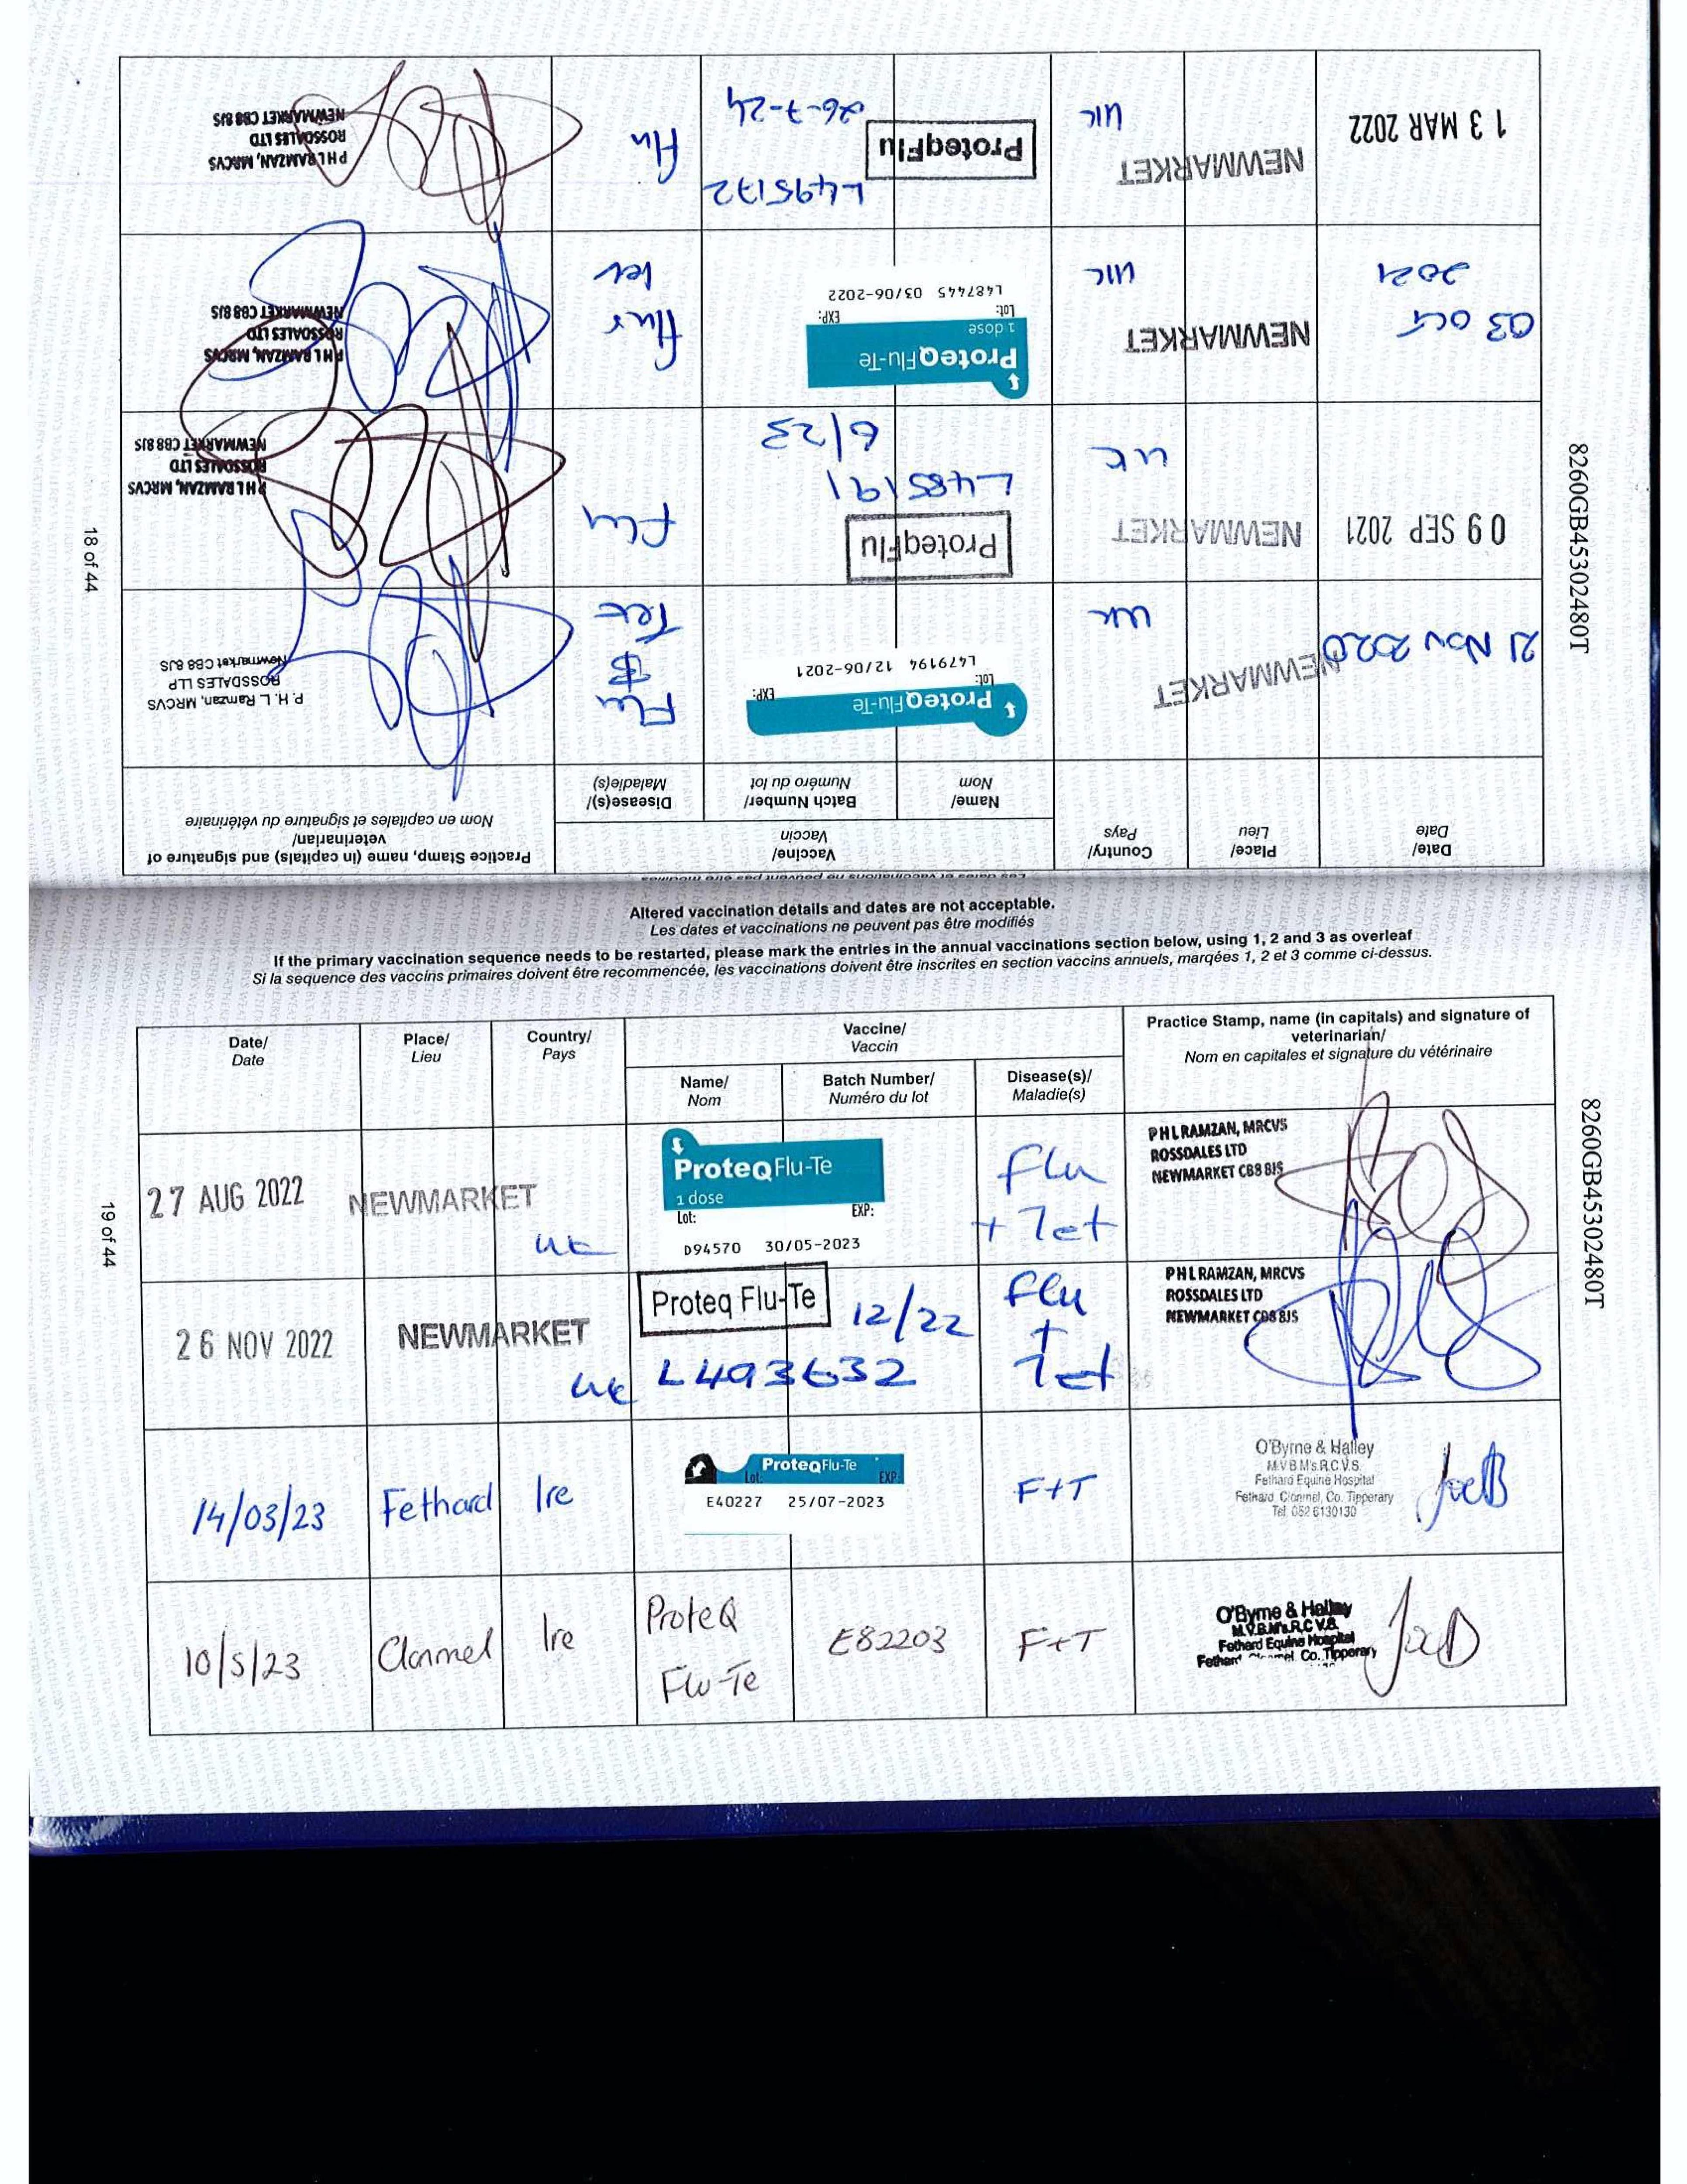 18 of 44
8260GB45302480T
Date/
Date
Place/
Lieu
Country/
Pays
Vaccine/
Vaccin
Name/
Nom
Batch Number/
Numéro du lot
Disease(s)/
Maladie(s)
Practice Stamp, name (in capitals) and signature of
veterinarian/
Nom en capitales et signature du vétérinaire
21 Nov 2020
NEWMARKET
UK
ProteqFlu-Te
Lot: EXP:
L479194 12/06-2021
Flu
&
Tet
P. H. L Ramzan, MRCVS
ROSSDALES LLP
Newmarket CB8 8JS
09 SEP 2021
NEWMARKET
UK
ProteqFlu
L485191
6/23
Flu
PHL RAMZAN, MRCVS
ROSSDALES LTD
NEWMARKET CB8 8JS
03 Oct
2021
NEWMARKET
UK
ProteqFlu-Te
1 dose
Lot: EXP:
L487445 03/06-2022
Flu +
tet
PHL RAMZAN, MRCVS
ROSSDALES LTD
NEWMARKET CB8 8JS
13 MAR 2022
NEWMARKET
UK
ProteqFlu
L495172
26-7-24
Flu
PHL RAMZAN, MRCVS
ROSSDALES LTD
NEWMARKET CB8 8JS
Altered vaccination details and dates are not acceptable.
Les dates et vaccinations ne peuvent pas être modifiés
If the primary vaccination sequence needs to be restarted, please mark the entries in the annual vaccinations section below, using 1, 2 and 3 as overleaf
Si la sequence des vaccins primaires doivent être recommencée, les vaccinations doivent être inscrites en section vaccins annuels, marqées 1, 2 et 3 comme ci-dessus.
Date/
Date
Place/
Lieu
Country/
Pays
Vaccine/
Vaccin
Name/
Nom
Batch Number/
Numéro du lot
Disease(s)/
Maladie(s)
Practice Stamp, name (in capitals) and signature of
veterinarian/
Nom en capitales et signature du vétérinaire
27 AUG 2022
NEWMARKET
UK
ProteqFlu-Te
1 dose
Lot: EXP:
D94570 30/05-2023
Flu
+ Tet
PHL RAMZAN, MRCVS
ROSSDALES LTD
NEWMARKET CB8 8JS
26 NOV 2022
NEWMARKET
UK
Proteq Flu-Te
12/22
L493632
Flu
+
Tet
PHL RAMZAN, MRCVS
ROSSDALES LTD
NEWMARKET CB8 8JS
14/03/23
Fethard
Ire
ProteqFlu-Te
Lot: EXP:
E40227 25/07-2023
F+T
O'Byrne & Halley
M.V.B.M's.R.C.V.S.
Fethard Equine Hospital
Fethard Clonmel, Co. Tipperary
Tel. 052 6130130
10/5/23
Clonmel
Ire
ProteQ
Flu-Te
E82203
F+T
O'Byrne & Halley
M.V.B.M's.R.C.V.S.
Fethard Equine Hospital
Fethard Clonmel, Co. Tipperary
19 of 44
8260GB45302480T